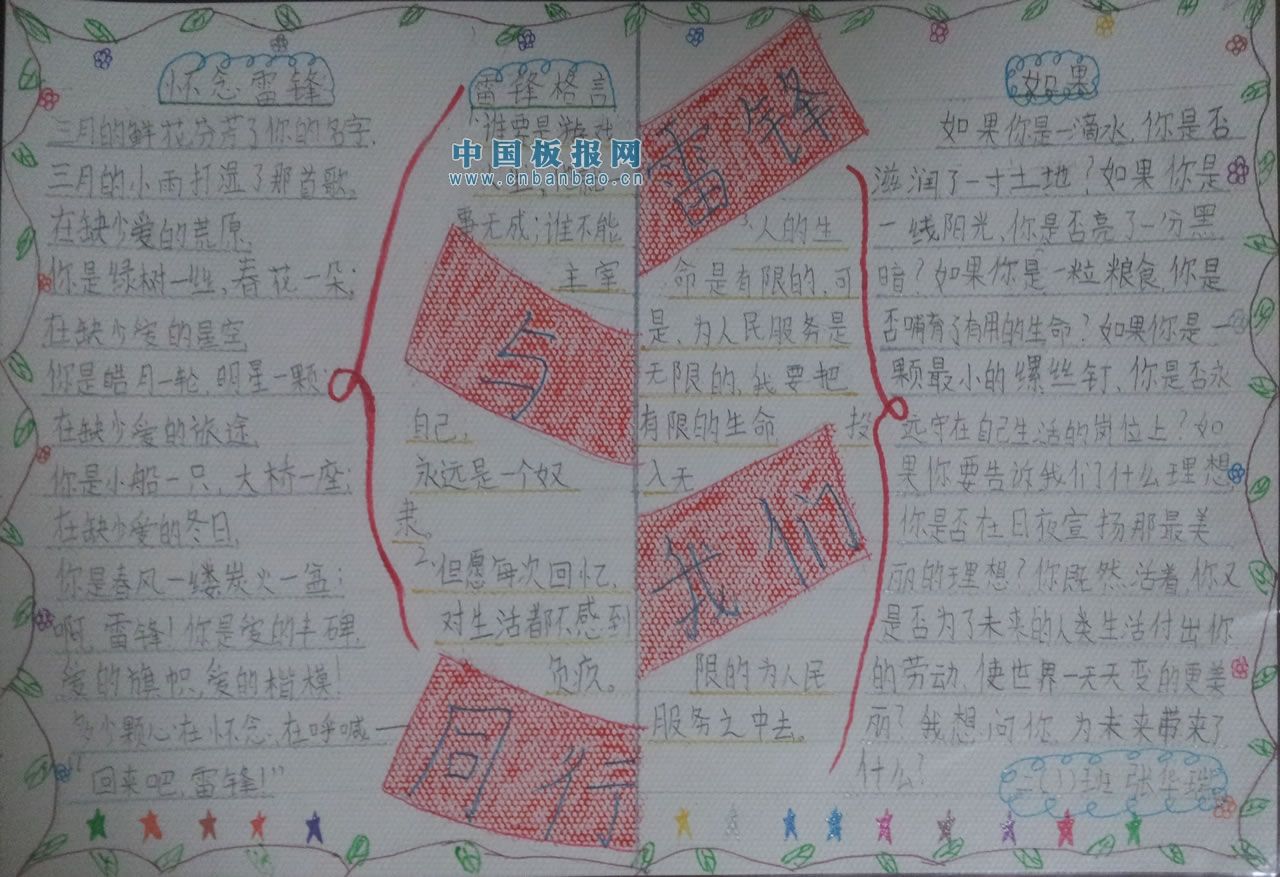 怀念雷锋
三月的鲜花芬芳了你的名字,
三月的小雨打湿了那首歌。
在缺少爱的荒原,
你是绿树一丝、春花一朵;
在缺少爱的星空
你是皓月一轮,明星一颗
在缺少爱的旅途,
你是小船一只,大桥一座;
在缺少爱的冬日,
你是春风一缕炭火一盆;
啊,雷锋!你是爱的丰碑,
爱的旗帜,爱的楷模!
多少颗心在怀念,在呼喊—
“回来吧,雷锋!”
雷锋格言
谁要是游戏
中国板报网
www.cnbanbao.cn
事无成;谁不能
主宰
自己,
永远是一个奴
隶。
2、但愿每次回忆,
对生活都不感到
负疚。
雷锋
与
我们
同行
3、人的生
命是有限的,可
是,为人民服务是
无限的,我要把
有限的生命 投
入无
限的为人民
服务之中去。
如果
如果你是一滴水,你是否
滋润了一寸土地?如果你是
一线阳光,你是否亮了一分黑
暗?如果你是一粒粮食,你是
否哺育了有用的生命?如果你是一
颗最小的螺丝钉,你是否永
远守在自己生活的岗位上?如
果你要告诉我们什么理想,
你是否在日夜宣扬那最美
丽的理想?你既然活着,你又
是否为了未来的人类生活付出你
的劳动,使世界一天天变的更美
丽?我想问你,为未来带来了
什么?
二(1)班 张华